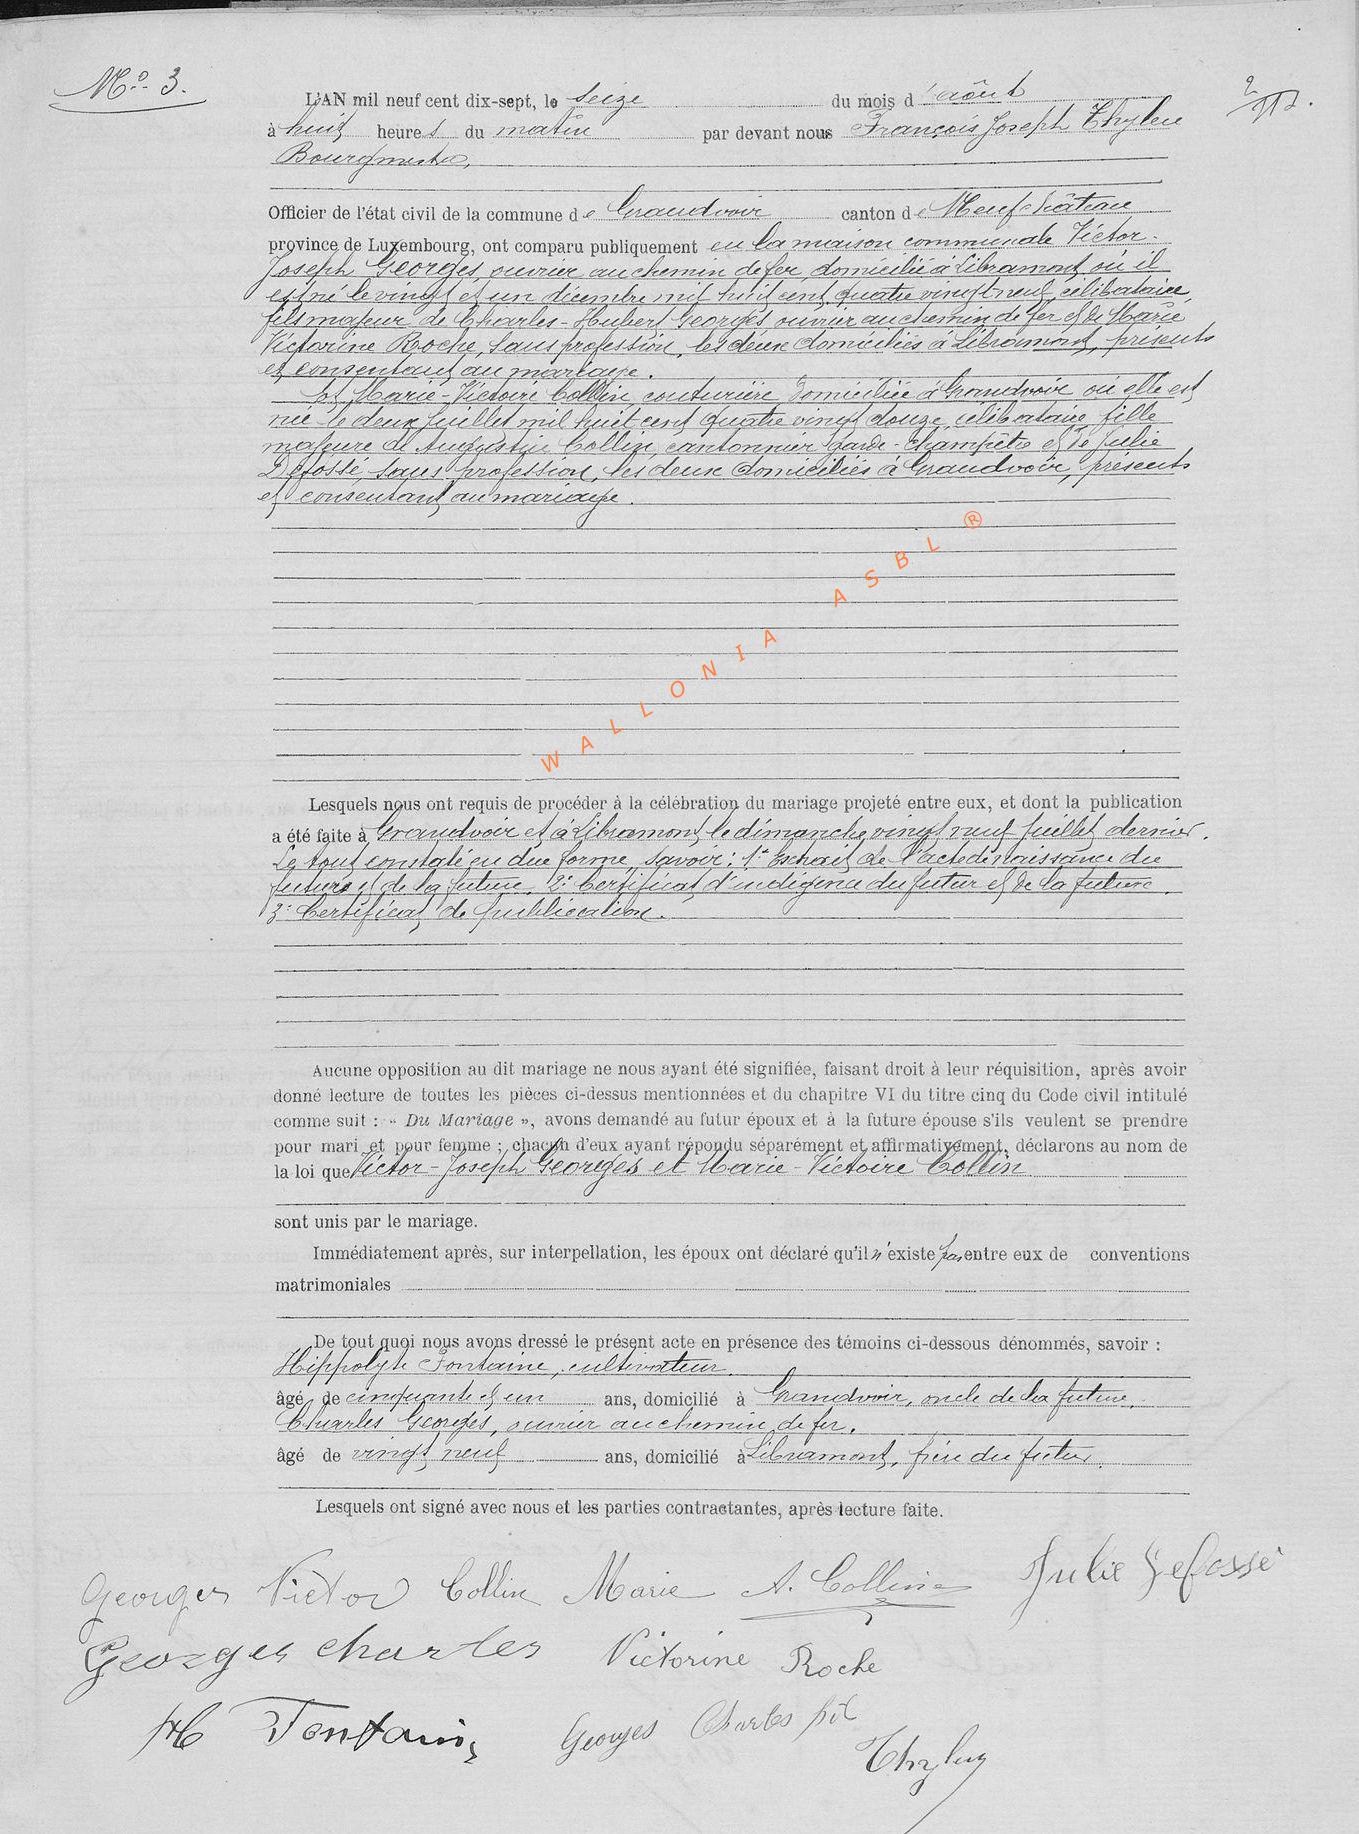 No. 3.
L'AN mil neuf cent dix-sept, le seize du mois d'août
à huit heures du matin par devant nous François Joseph
Bourgmestre,
Officier de l'état civil de la commune de Grandvoir canton de Neufchâteau
province de Luxembourg, ont comparu publiquement en la maison communale Victor-
Joseph Georges, ouvrier au chemin de fer, domicilié à Libramont où il
est né le vingt et un décembre mil huit cent quatre vingt neuf, célibataire,
fils majeur de Charles-Hubert Georges ouvrier au chemin de fer et de Marie
Victorine Roche, sans profession, les deux domiciliés à Libramont, présents
et consentant au mariage.
Et Marie-Victoire Collin, couturière, domiciliée à Grandvoir où elle est
née le deux juillet mil huit cent quatre vingt douze, célibataire, fille
majeure de Augustin Collin, cantonnier garde-champêtre et de Julie
Defosse, sans profession, les deux domiciliés à Grandvoir, présents
et consentant au mariage.
WALLONIA ASBL ®
Lesquels nous ont requis de procéder à la célébration du mariage projeté entre eux, et dont la publication
a été faite à Grandvoir et à Libramont, le dimanche vingt neuf juillet dernier.
Le tout constaté en due forme, savoir: 1° Extrait de l'acte de naissance du
futur et de la future. 2° Certificat d'indigence du futur et de la future.
3° Certificat de publication.
Aucune opposition au dit mariage ne nous ayant été signifiée, faisant droit à leur réquisition, après avoir
donné lecture de toutes les pièces ci-dessus mentionnées et du chapitre VI du titre cinq du Code civil intitulé
comme suit : « Du Mariage », avons demandé au futur époux et à la future épouse s'ils veulent se prendre
pour mari et pour femme ; chacun d'eux ayant répondu séparément et affirmativement, déclarons au nom de
la loi que Victor-Joseph Georges et Marie-Victoire Collin
sont unis par le mariage.
Immédiatement après, sur interpellation, les époux ont déclaré qu'il n'existe pas entre eux de conventions
matrimoniales
De tout quoi nous avons dressé le présent acte en présence des témoins ci-dessous dénommés, savoir :
Hippolyte Fontaine, cultivateur
âgé de cinquante et un ans, domicilié à Grandvoir, oncle de la future,
Charles Georges, ouvrier au chemin de fer,
âgé de vingt neuf ans, domicilié à Libramont, frère du futur.
Lesquels ont signé avec nous et les parties contractantes, après lecture faite.
Georges Victor Collin Marie A. Collin Julie Defosse
Georges Charles Victorine Roche
H Fontaine Georges Charles